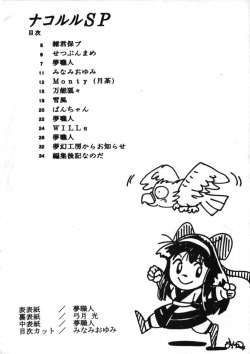 ナコルルSP
目次
5 雑君保プ
6 せつぶんまめ
7 夢職人
11 みなみおゆみ
12 Monty(月茶)
13 万能狐々
19 雪風
20 ぱんちゃん
22 夢職人
24 WILLs
28 夢職人
32 夢幻工房からお知らせ
34 編集後記なのだ
表表紙 / 夢職人
裏表紙 / 弓月 光
中表紙 / 夢職人
目次カット / みなみおゆみ